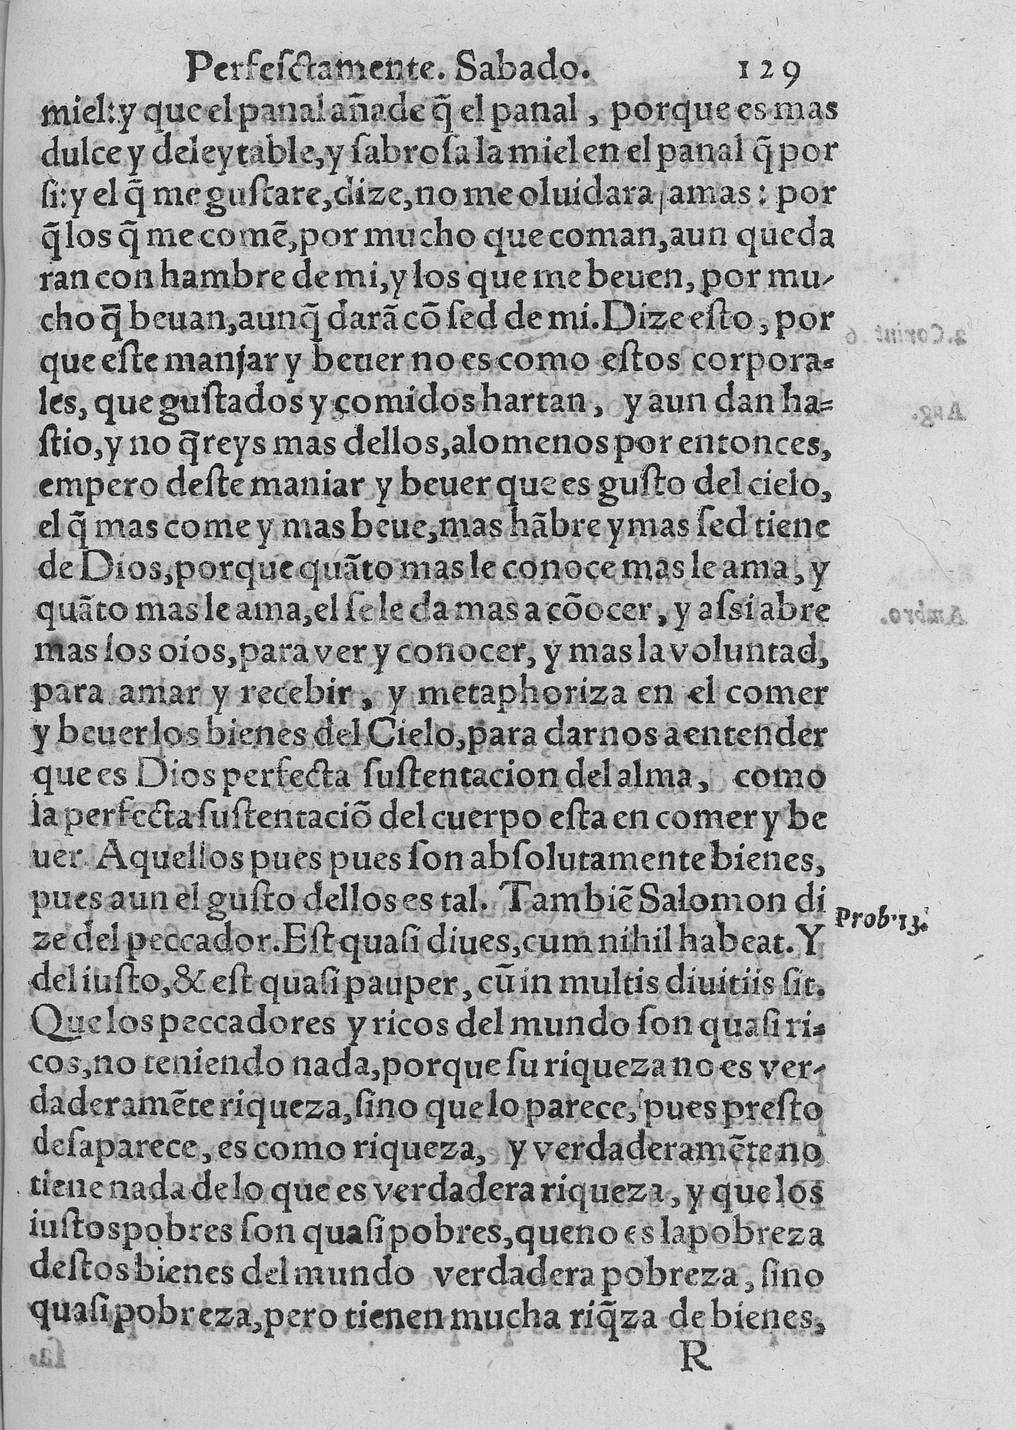 Perfeſctamente. Sabado. 129
miel:y que el panal añade q̃ el panal, porque es mas
dulce y deleytable,y ſabroſa la miel en el panal q̃ por
ſi:y el q̃ me guſtare,dize,no me oluidara jamas: por
q̃ los q̃ me comẽ,por mucho que coman,aun queda
ran con hambre de mi,y los que me beuen, por mu-
cho q̃ beuan,aunq̃ darã cõ ſed de mi.Dize eſto, por
que eſte manjar y beuer no es como eſtos corpora-
les, que guſtados y comidos hartan, y aun dan ha-
ſtio,y no q̃reys mas dellos,alomenos por entonces,
empero deſte maniar y beuer que es guſto del cielo,
el q̃ mas come y mas beue,mas hãbre y mas ſed tiene
de Dios,porque quãto mas le conoce mas le ama, y
quãto mas le ama,el ſe le da mas a cõocer, y aſsi abre
mas los oios,para ver y conocer, y mas la voluntad,
para amar y recebir, y metaphoriza en el comer
y beuer los bienes del Cielo,para darnos a entender
que es Dios perfecta ſuſtentacion del alma, como
la perfecta ſuſtentaciõ del cuerpo eſta en comer y be
uer. Aquellos pues pues ſon abſolutamente bienes,
pues aun el guſto dellos es tal. Tambiẽ Salomon di
ze del peccador.Eſt quaſi diues,cum nihil habeat.Y
del iuſto,& eſt quaſi pauper, cũ in multis diuitiis ſit.
Prob.13.
Que los peccadores y ricos del mundo ſon quaſi ri-
cos,no teniendo nada,porque ſu riqueza no es ver-
daderamẽte riqueza,ſino que lo parece, pues preſto
deſaparece, es como riqueza, y verdaderamẽte no
tiene nada de lo que es verdadera riqueza, y que los
iuſtos pobres ſon quaſi pobres,que no es la pobreza
deſtos bienes del mundo verdadera pobreza, ſino
quaſi pobreza,pero tienen mucha riq̃za de bienes,
R